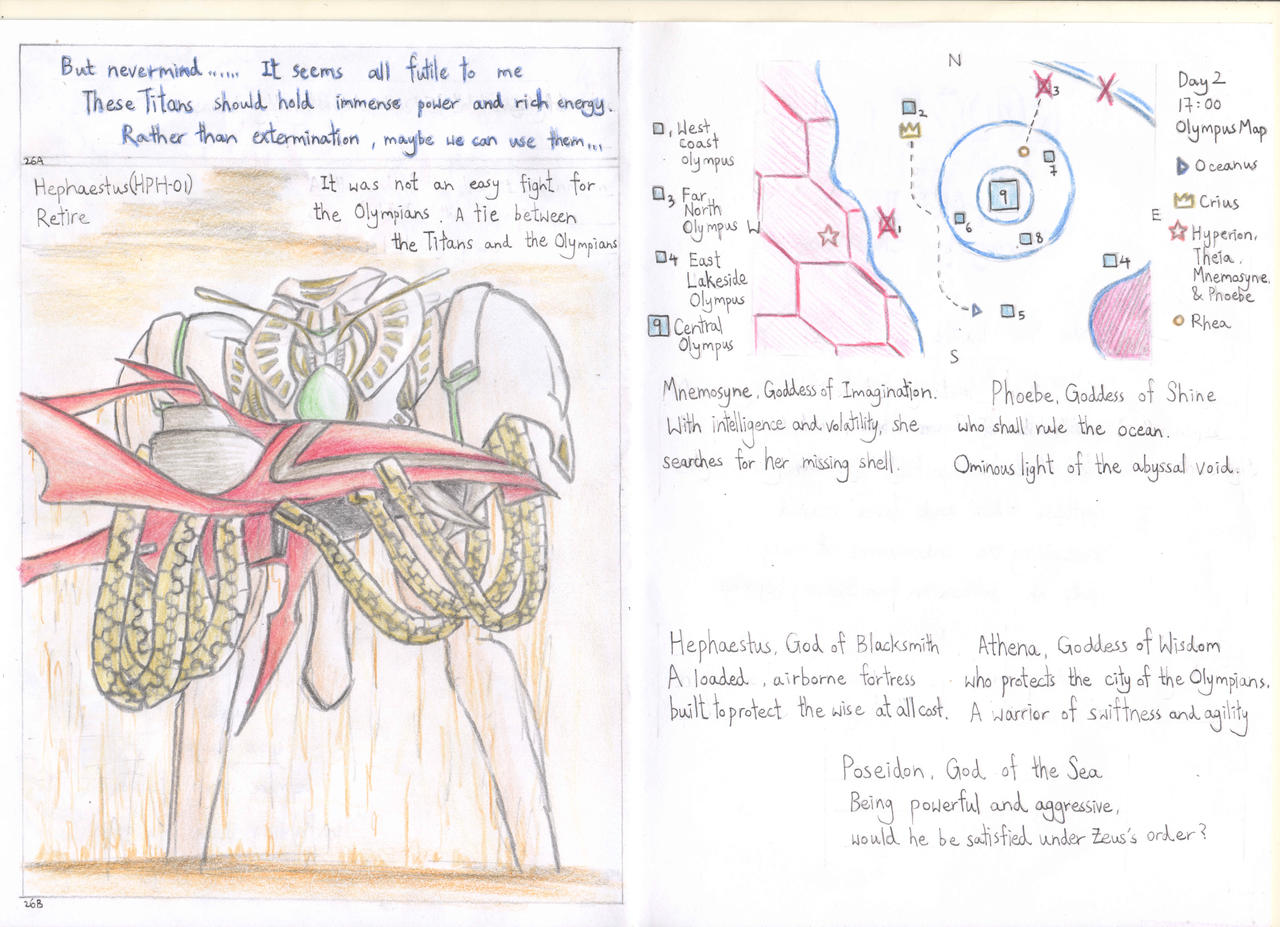 But nevermind...... It seems all futile to me
These Titans should hold immense power and rich energy.
Rather than extermination, maybe we can use them...
26A
Hephaestus(HPH-01)
Retire
It was not an easy fight for
the Olympians. A tie between
the Titans and the Olympians
26B
N
W
E
S
3
2
1
7
9
6
8
5
4
1, West
coast
olympus
3 Far
North
Olympus
4 East
Lakeside
Olympus
9 Central
Olympus
Day 2
17:00
Olympus Map
Oceanus
Crius
Hyperion,
Theia,
Mnemosyne,
& Phoebe
Rhea
Mnemosyne, Goddess of Imagination.
With intelligence and volatility, she
searches for her missing shell.
Phoebe, Goddess of Shine
who shall rule the ocean.
Ominous light of the abyssal void.
Hephaestus, God of Blacksmith
A loaded, airborne fortress
built to protect the wise at all cost.
Athena, Goddess of Wisdom
who protects the city of the Olympians.
A warrior of swiftness and agility
Poseidon, God of the Sea
Being powerful and aggressive,
would he be satisfied under Zeus's order?